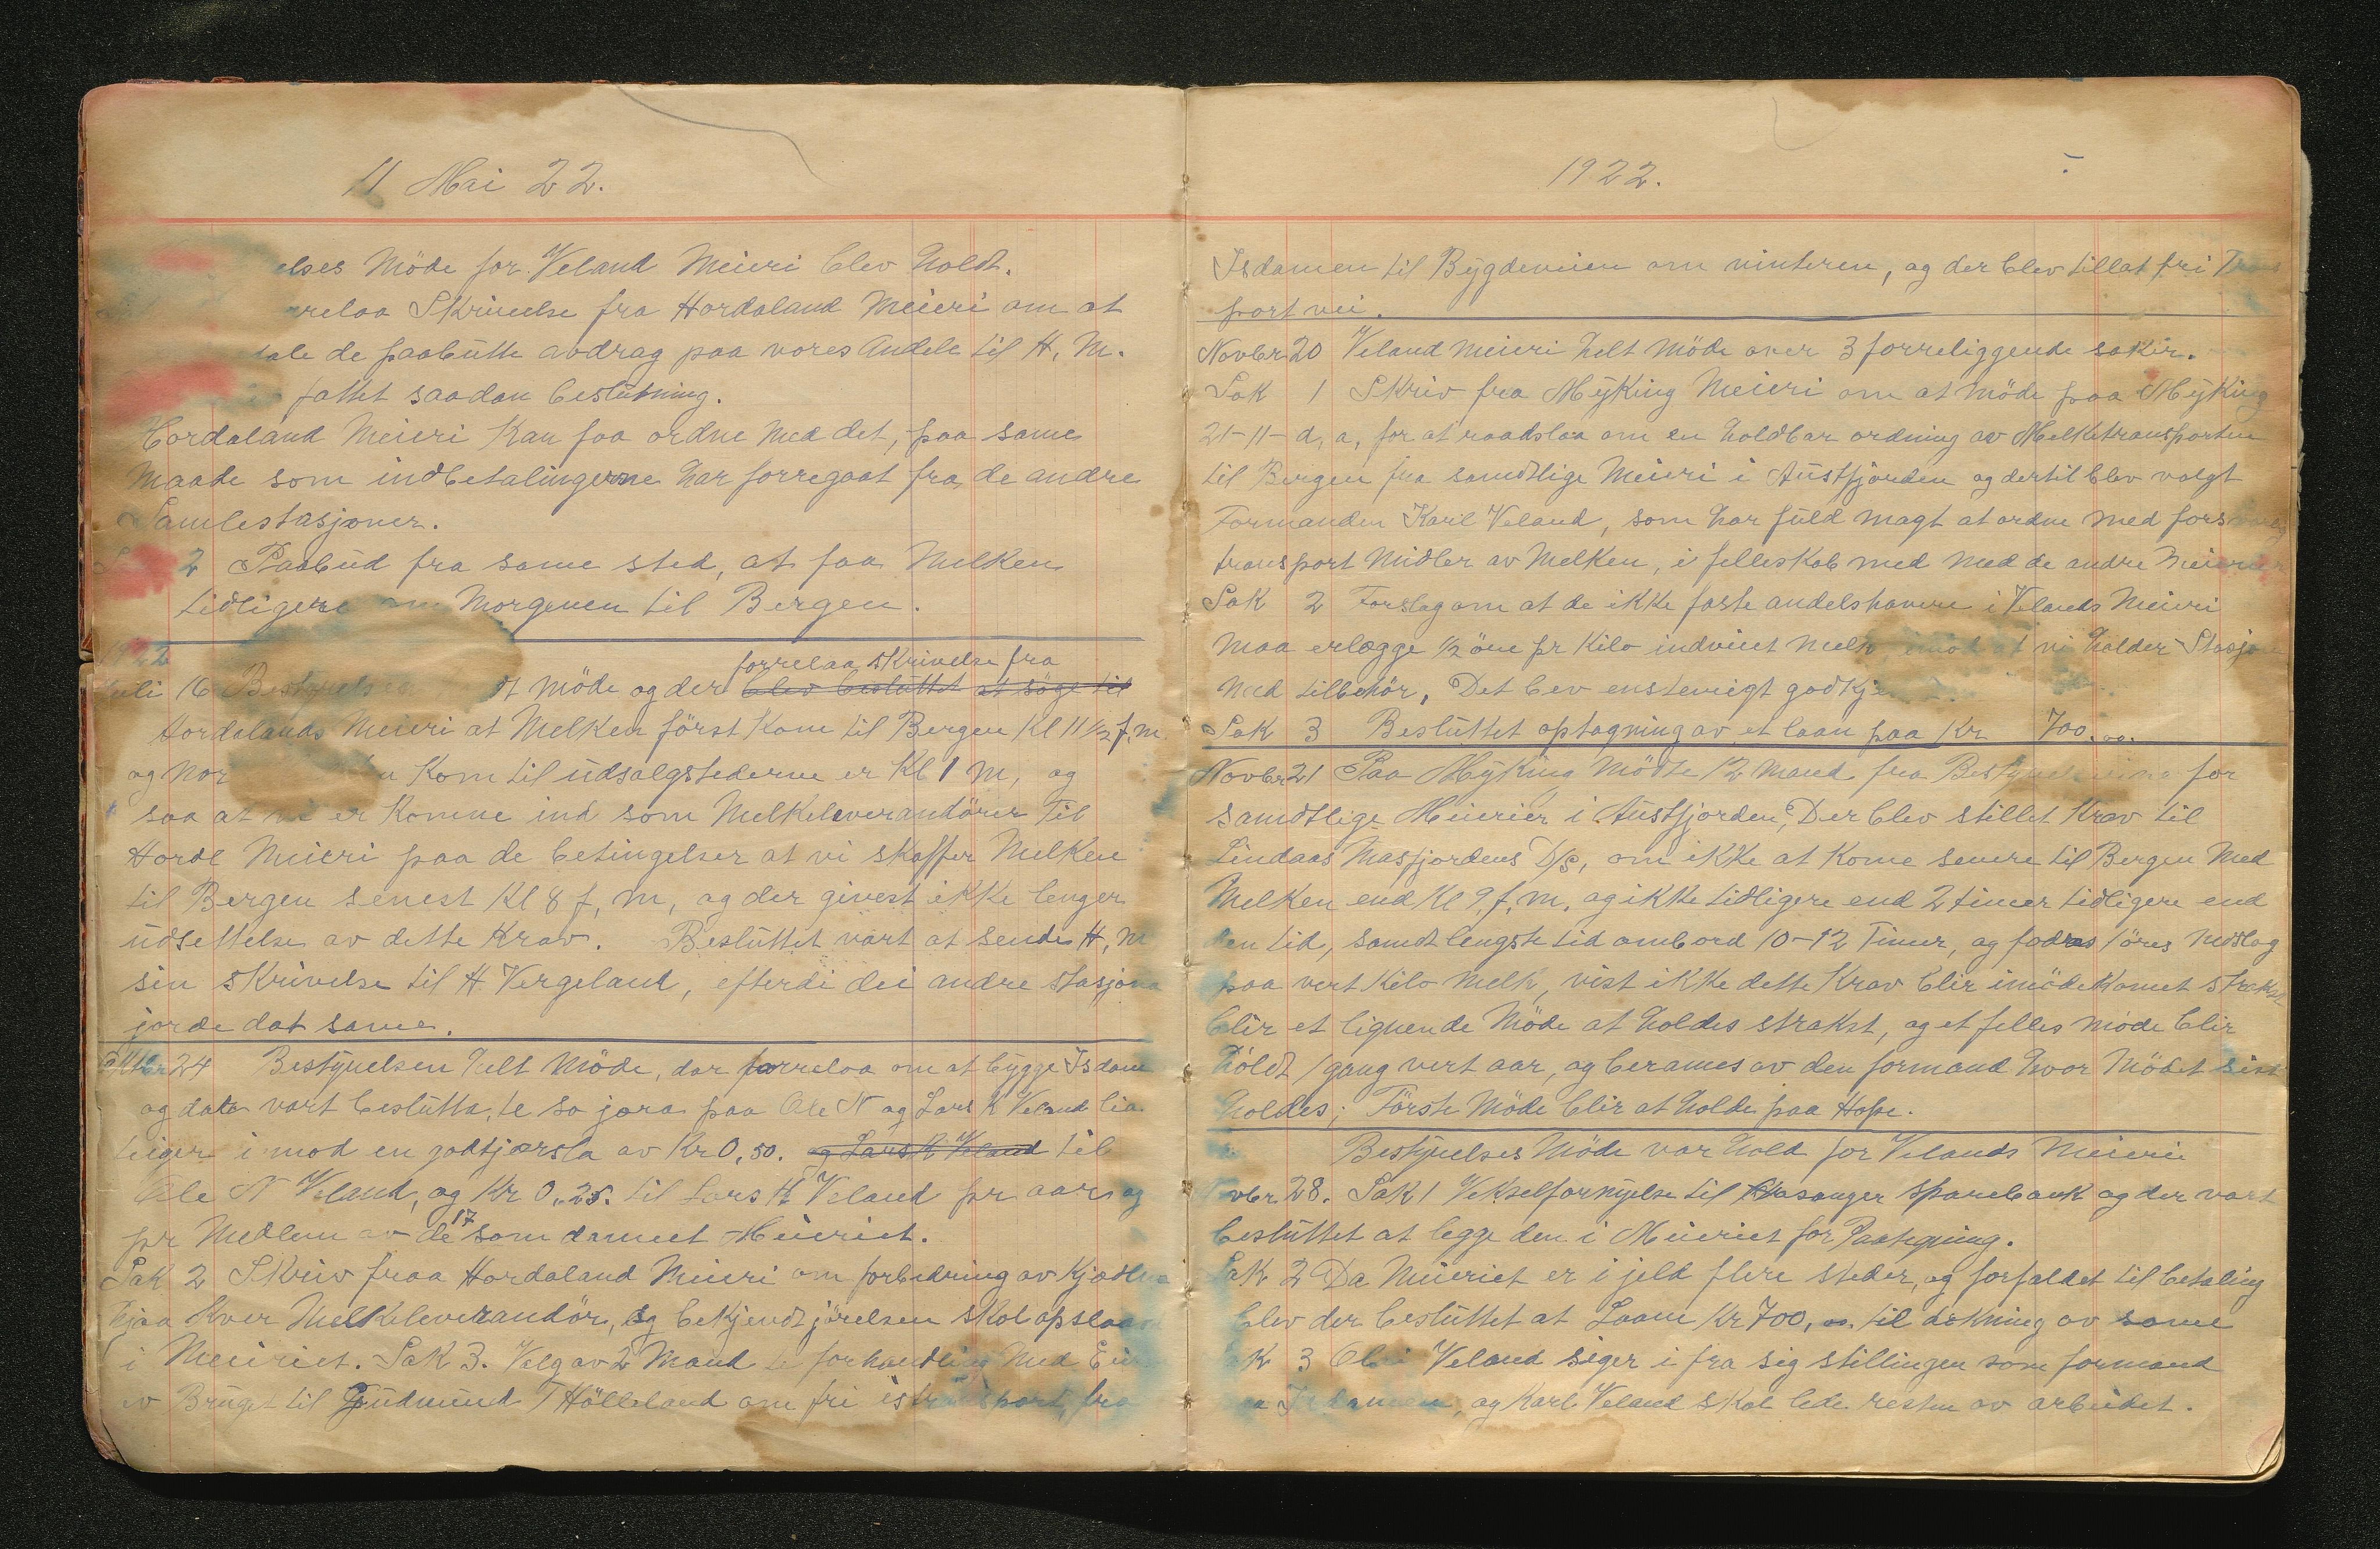 11 Mai 22.
elses Möde for Veland Meieri blev holdt.
relaa Skrivelse fra Hordaland Meieri om at
tale de paabutte avdrag paa vores Andele til H. M.
fattet saadan beslutning.
Hordaland Meieri Kan faa ordne med det, paa same
maade som indbetalingerne har forregaat fra de andre
Samlestasjoner.
2 Paabud fra same sted, at faa Melken
tidligere om Morgenen til Bergen.
1922
juli 16 Bestyrelsen dt Möde og der blev besluttet at söge til
forrelaa skrivelse fra
Hordalands Meieri at Melken först Kom til Bergen Kl 11 1/2 f.m.
og nor n Kom til udsalgstederne er Kl 1 M, og
saa at vi er Komne ind som Melkeleverandörer til
Hordl Meieri paa de betingelser at vi skaffer Melken
til Bergen senest Kl 8 f, m, og der givest ikke lenger
udsettelse av dette Krav. Besluttet vart at sende H, M
sin skrivelse til H. Vergeland, efterdi dei andre stasjona
jorde dat same.
Oktbr 24 Bestyrelsen helt Möde, dar forrelaa om at bygge Isdam
og data vart beslutta, te so jora paa Ole N og Lars H Veland lia
teiger imod en godtjørsla av Kr 0,50. og Lars H Veland til
Ole N Veland, og Kr 0.25. til Lars H Veland pr aar og
pr Medlem av de 17 som dannet Meieriet.
Sak 2 Skriv fraa Hordaland Meieri om forbedring av Kjødlin
hjaa Kver Melkeleverandör, og bekjendtjörelsen skal opslaa
i Meieriet. Sak 3. Valg av 2 Mand te forhandling med Eie
v Bruget til Gudmund T Hölleland om fri istransport, fra
1922.
Isdamen til Bygdeveien om vinteren, og der blev tillat fri Trans
port vei.
Novbr 20 Veland Meieri helt Möde over 3 forreliggende saker.
Sak 1 Skriv fra Myking Meieri om at möde paa Myking
21-11- d, a, for at raadslaa om en holdbar ordning av Melketransporten
til Bergen fra samdtlige Meieri i Austfjorden og dertil blev valgt
Formanden Karl Veland, som har fuld magt at ordne med forsvarlig
transport Midler av Melken, i felleskab med med de andre Meierier
Sak 2 Forslag om at de ikke faste andelshavere i Velands Meieri
maa erlægge 1/2 öre pr Kilo indveiet melk imod at vi holder Stasjon
med tilbehör, Det bev enstemigt godkje
Sak 3 Besluttet optagning av et laan paa Kr 700.00.
Novbr 21 Paa Myking Mödte 12 Mand fra Bestyrelserne for
samdtlige Meierier i Austfjorden, Der blev stillet Krav til
Lindaas Masfjordens D/S, om ikke at Kome senere til Bergen med
Melken end Kl 9, f, m, og ikke tidligere end 2 timer tidligere end
den tid, samdt lengste tid ombord 10-12 Timer, og fodres 1 öres Nedslag
paa vert Kilo Melk, vist ikke dette Krav blir imödekomet strakst
blir et lignende Möde at holdes strakst, og et felles möde blir
holdt 1 gang vert aar, og berames av den formand hvor Mödet sist
holdes; Förste Möde blir at holde paa Hope.
Bestyrelses Möde var hold for Velands Meieri
Novbr 28. Sak 1 Vekselfornyelse til Hosanger Sparebank og der vart
besluttet at legge den i Meieriet for Paategning.
Sak 2 Da Meieriet er i jeld flere steder, og forfaldet til betaling
blev der besluttet at Laane Kr 700,00. til dekning av same
Sak 3 Ole Veland siger i fra sig stillingen som formand
paa Isdamen, og Karl Veland skal lede resten av arbeidet.